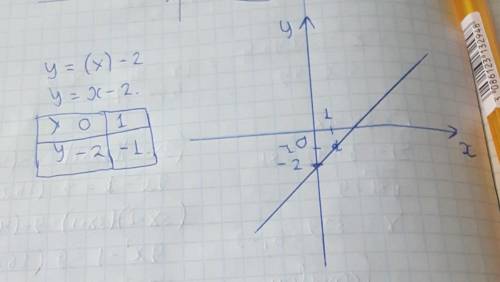 y = (x) - 2
y = x - 2.
x 0 1
y -2 -1
y
1
0
-2
x
5086123132948